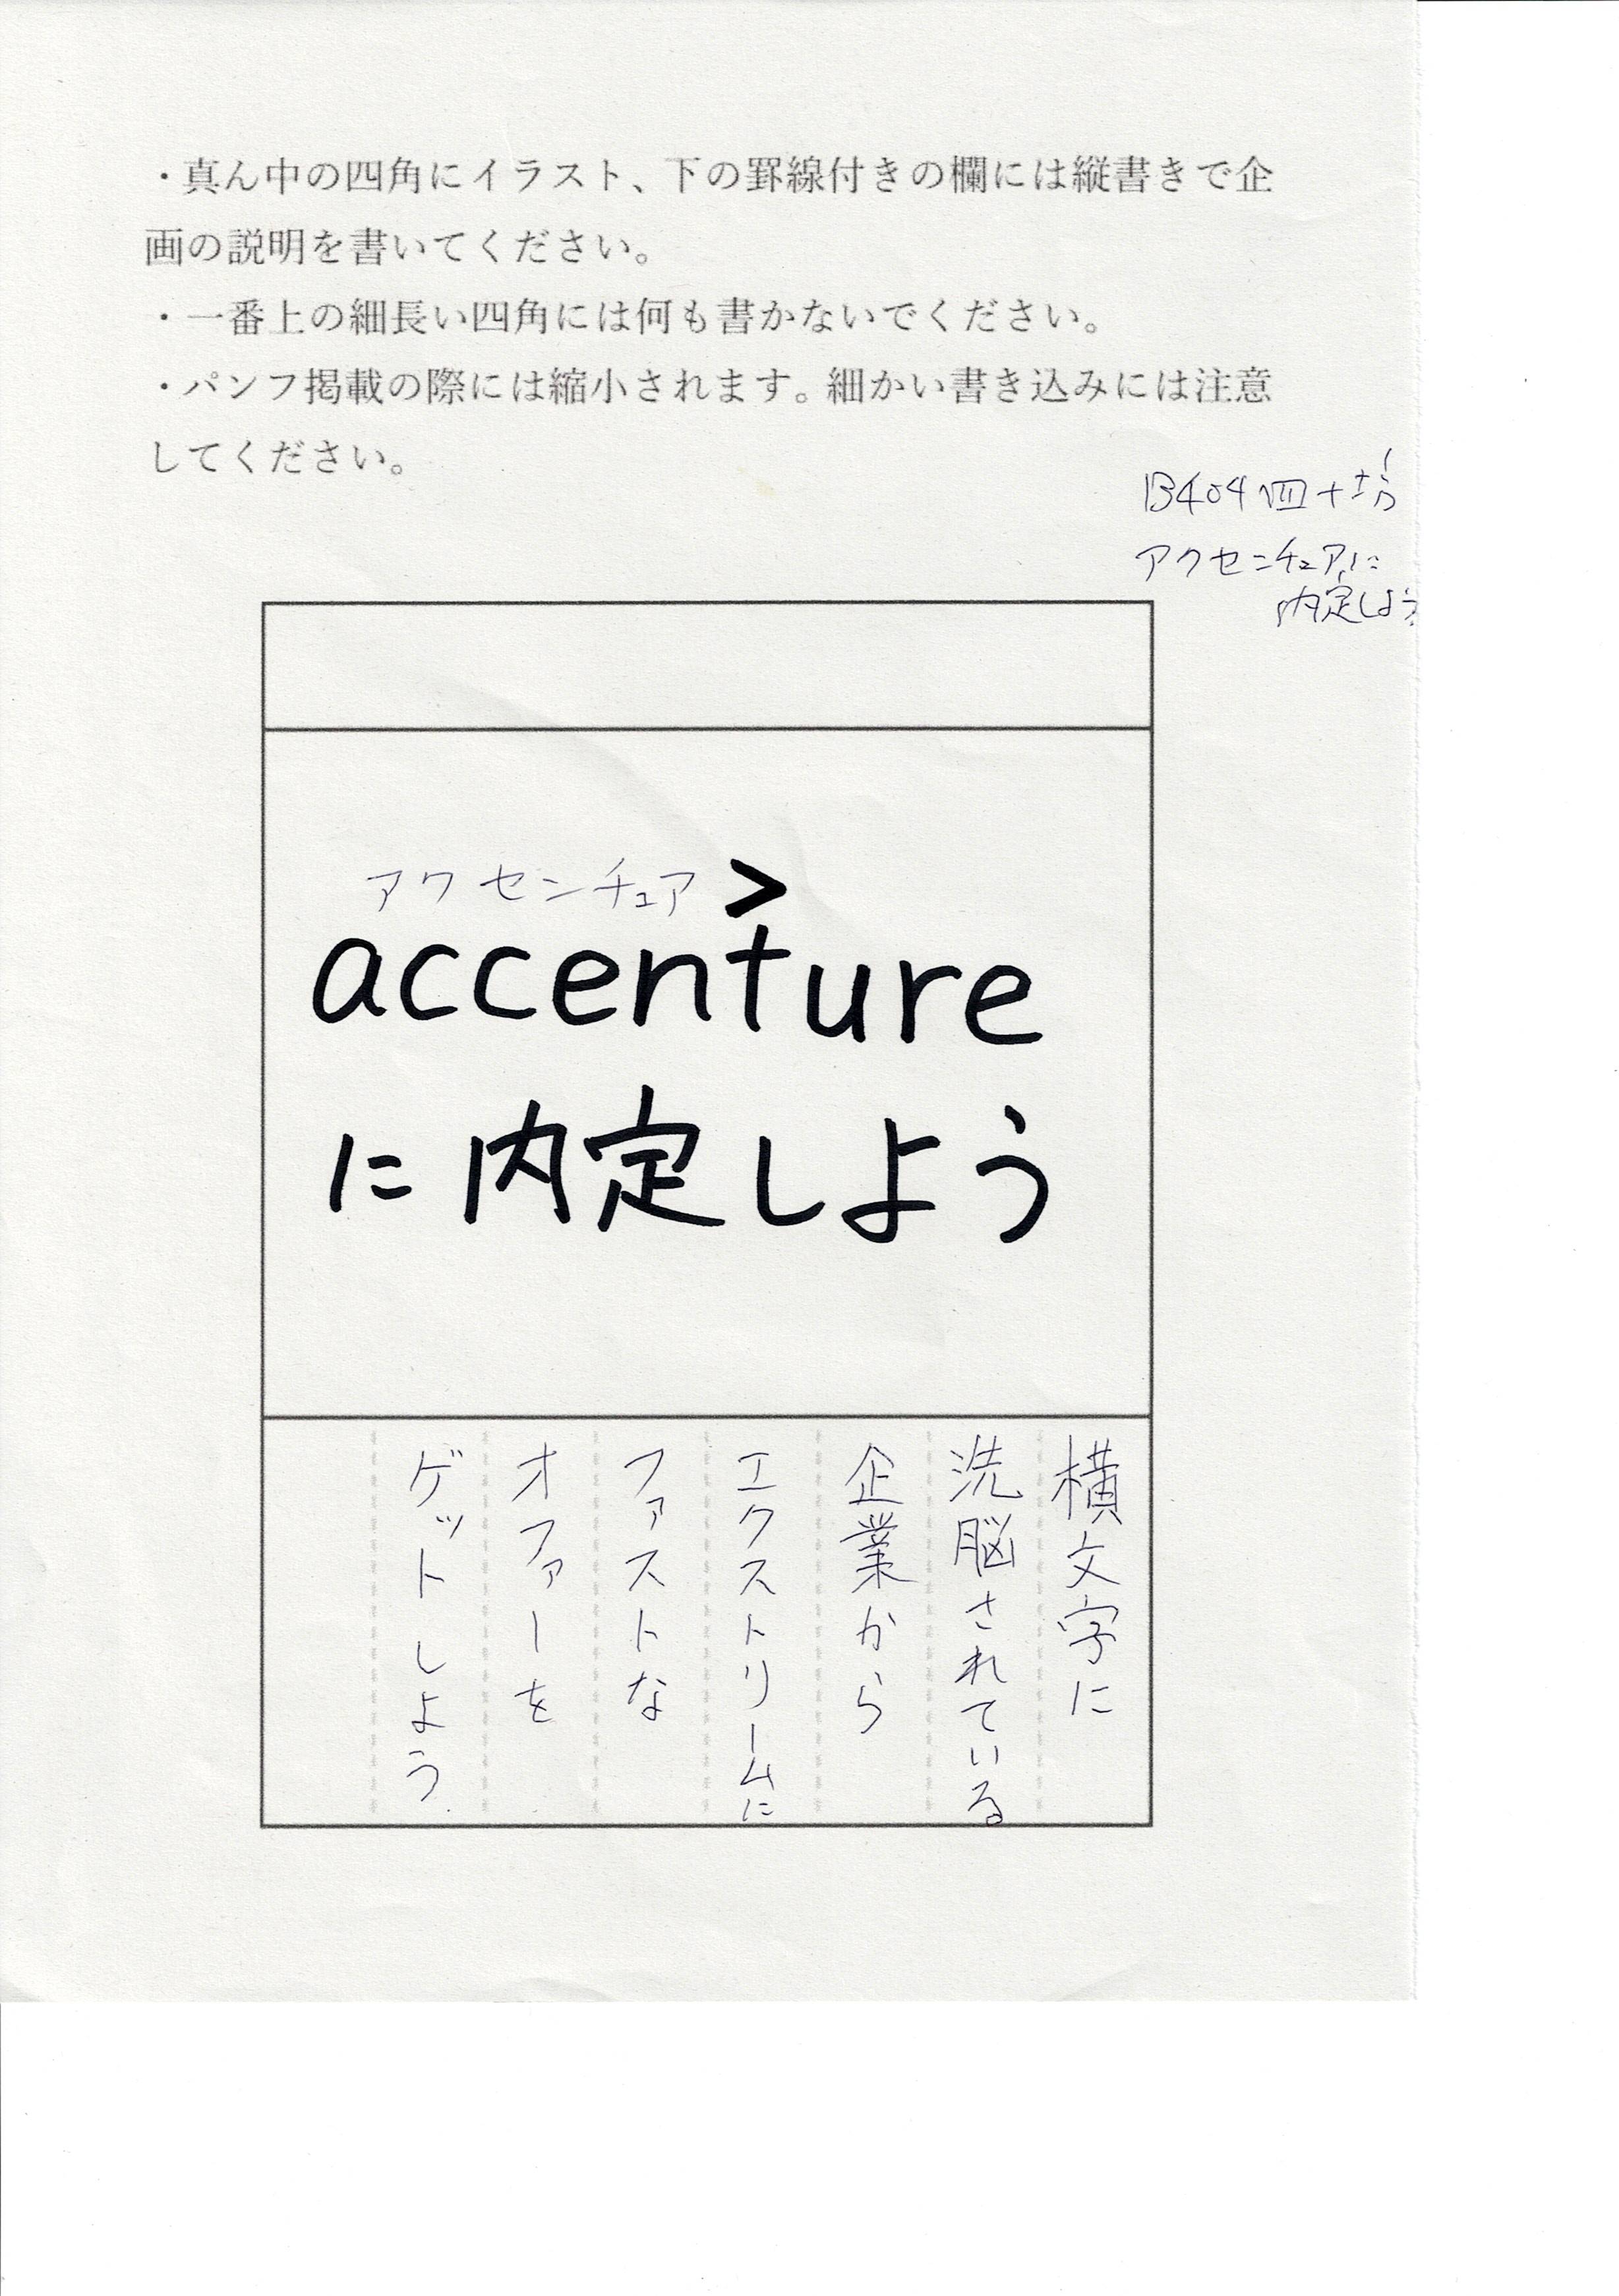 ・真ん中の四角にイラスト、下の罫線付きの欄には縦書きで企
画の説明を書いてください。
・一番上の細長い四角には何も書かないでください。
・パンフ掲載の際には縮小されます。細かい書き込みには注意
してください。
B404 四十坊
アクセンチュアに
内定しよう
アクセンチュア >
accenture
に内定しよう
横文字に
洗脳されている
企業から
エクストリームに
ファストな
オファーを
ゲットしよう